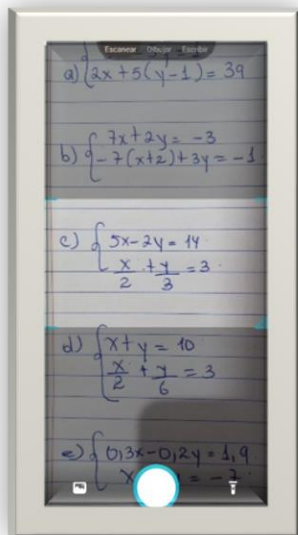 Escanear Dibujar Escribir
a) { 2x + 5(y - 1) = 39
b) { 7x + 2y = -3
-7(x+2) + 3y = -1
c) { 5x - 2y = 14
x/2 + y/3 = 3
d) { x + y = 10
x/2 + y/6 = 3
e) { 0,3x - 0,2y = 1,9
x = -7